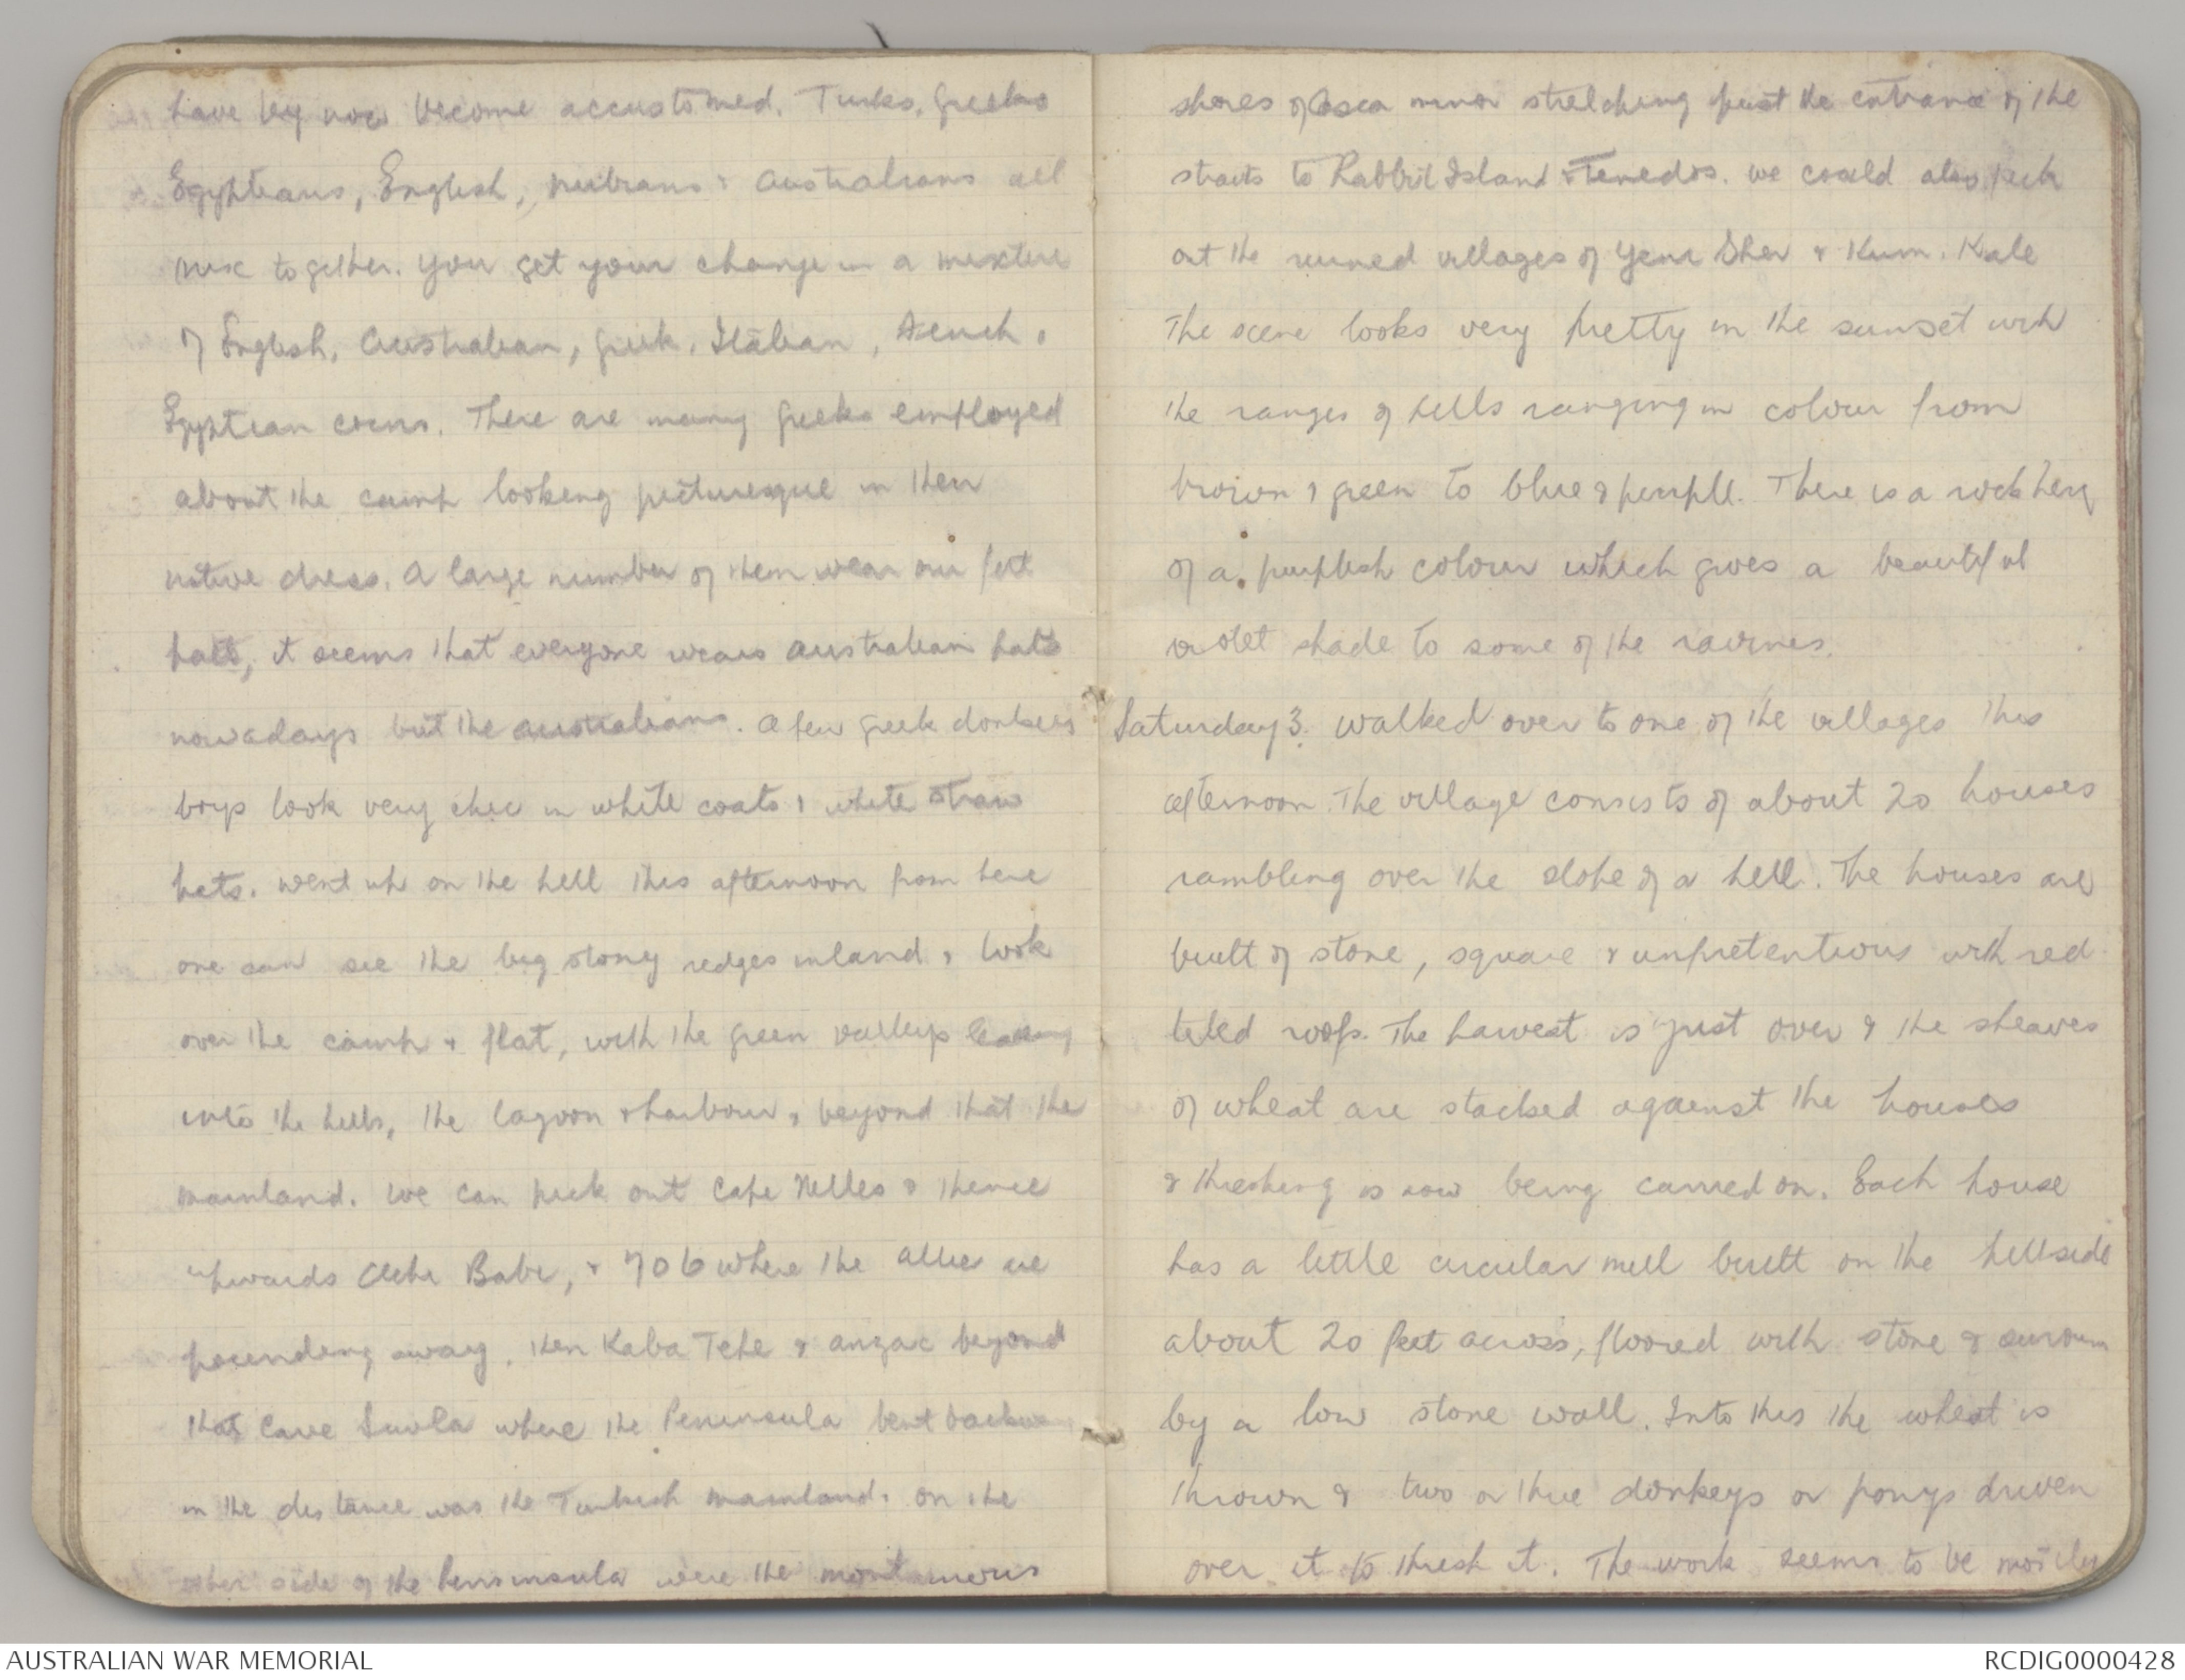 have by now become accustomed. Turks, Greeks
Egyptians, English, & Australians all
mix together. You get your change in a mixture
of English, Australian, Greek, Italian, French &
Egyptian coins. There are many Greeks employed
about the camp looking picturesque in their
native dress. A large number of them wear our felt
hats, it seems that everyone wears Australian hats
nowadays but the Australians. A few Greek donkey
boys look very chic in white coats & white straw
hats. Went up on the hill this afternoon from here
one can see the big stony ridges inland, & look
over the camp & flat, with the green valleys leading
into the hills, the lagoon & harbour, & beyond that the
mainland. We can pick out Cape Helles & thence
upwards Achi Baba, & 706 where the allies are
pounding away, then Kaba Tepe & Anzac beyond
that Cave Suvla where the Peninsula bent
in the distance was the Turkish mainland. On the
other side of the Peninsula were the mountainous
shores of Asia minor stretching past the entrance of the
straits to Rabbit Island & Tenedos. We could also pick
out the ruined villages of Yeni Sher & Kum. Kale
The scene looks very pretty in the sunset with
the ranges of hills ranging in colour from
brown & green to blue & purple. There is a rock here
of a purplish colour which gives a beautiful
violet shade to some of the ravines.
Saturday 3. Walked over to one of the villages this
afternoon. The village consists of about 20 houses
rambling over the slope of a hill. The houses are
built of stone, square & unpretentious with red
tiled roofs. The harvest is just over & the sheaves
of wheat are stacked against the houses
& threshing is now being carried on. Each house
has a little circular mill built on the hillside
about 20 feet across, floored with stone &
by a low stone wall. Into this the wheat is
thrown & two or three donkeys or ponys driven
over it to thresh it. The work seems to be mostly
AUSTRALIAN WAR MEMORIAL
RCDIG0000428